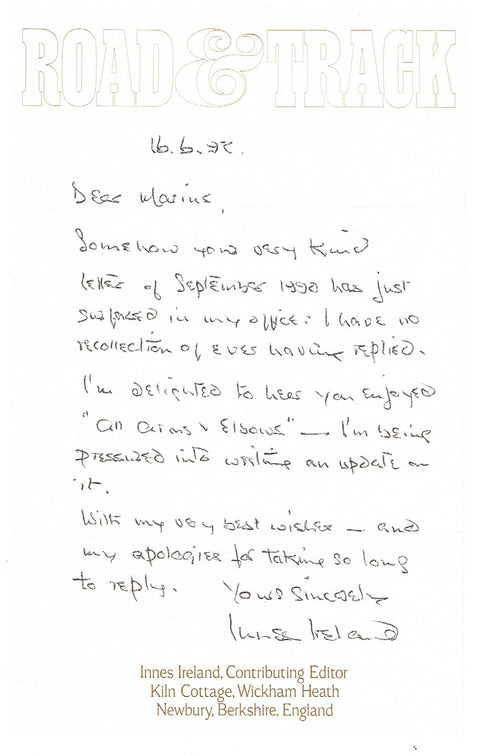 ROAD & TRACK
16.6.92.
Dear Marine,
Somehow your very kind
letter of September 1990 has just
surfaced in my office. I have no
recollection of ever having replied.
I'm delighted to hear you enjoyed
"All Arms & Elbows" — I'm being
pressurized into writing an update on
it.
With my very best wishes — and
my apologies for taking so long
to reply.
Yours Sincerely
Innes Ireland
Innes Ireland, Contributing Editor
Kiln Cottage, Wickham Heath
Newbury, Berkshire, England